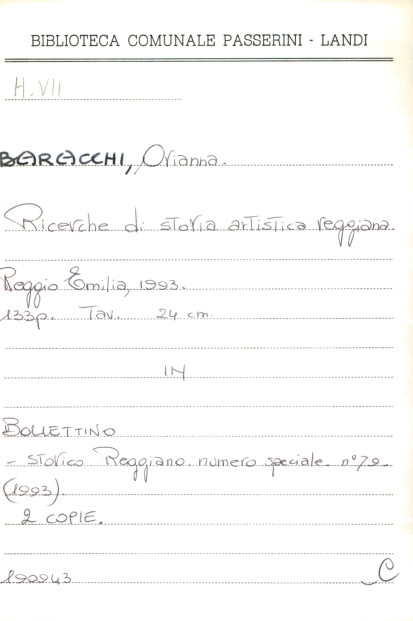 BIBLIOTECA COMUNALE PASSERINI - LANDI
H.VII
BARACCHI, Orianna.
Ricerche di storia artistica reggiana.
Reggio Emilia, 1993.
133p. Tav. 24 cm.
IN
BOLLETTINO
- storico Reggiano. numero speciale. n°79.
(1993).
2 COPIE.
190943
C